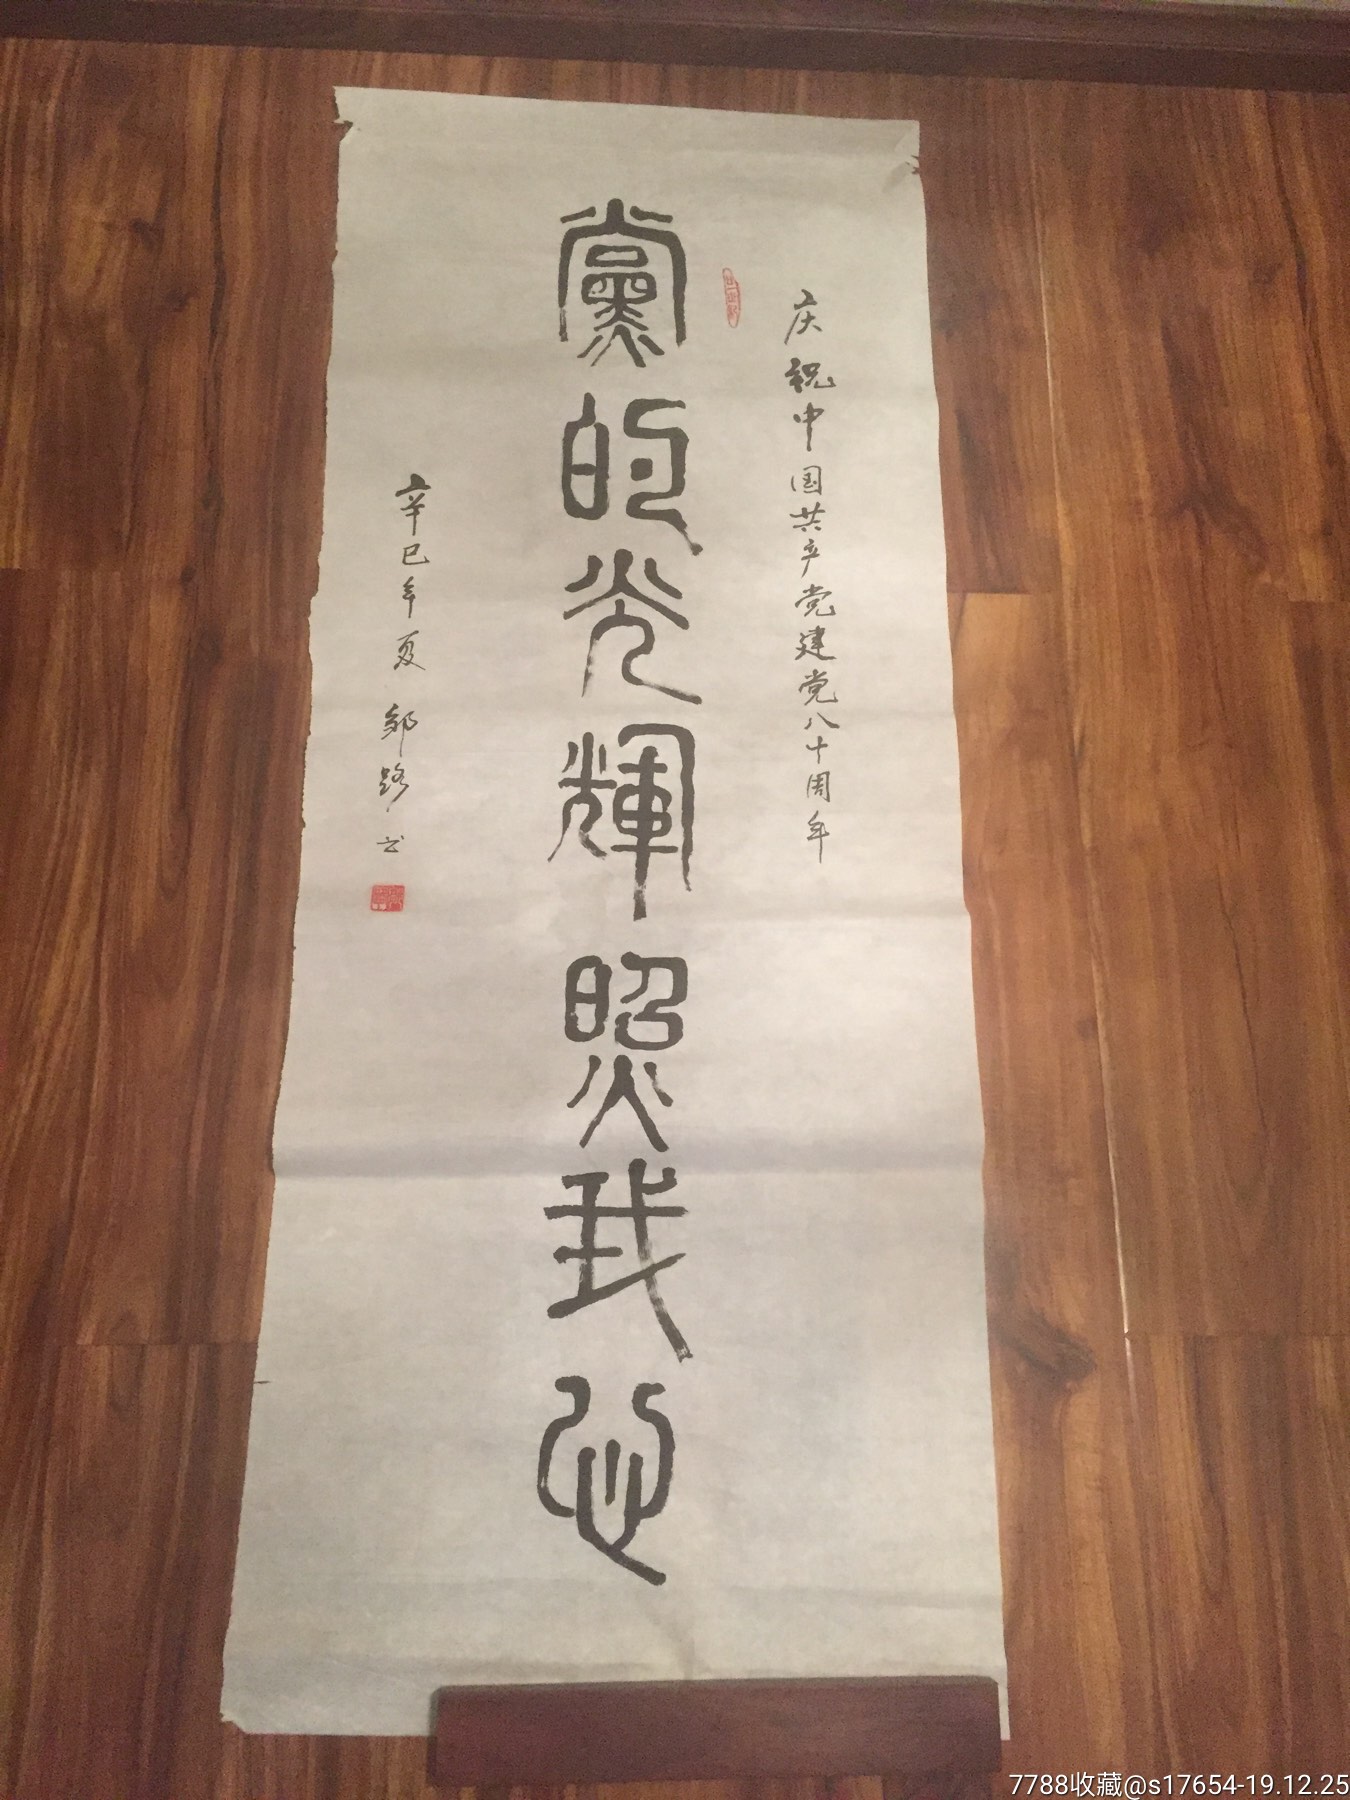 庆祝中国共产党建党八十周年
黨的光輝照我心
辛巳年夏 邹路书
7788收藏@s17654-19.12.25